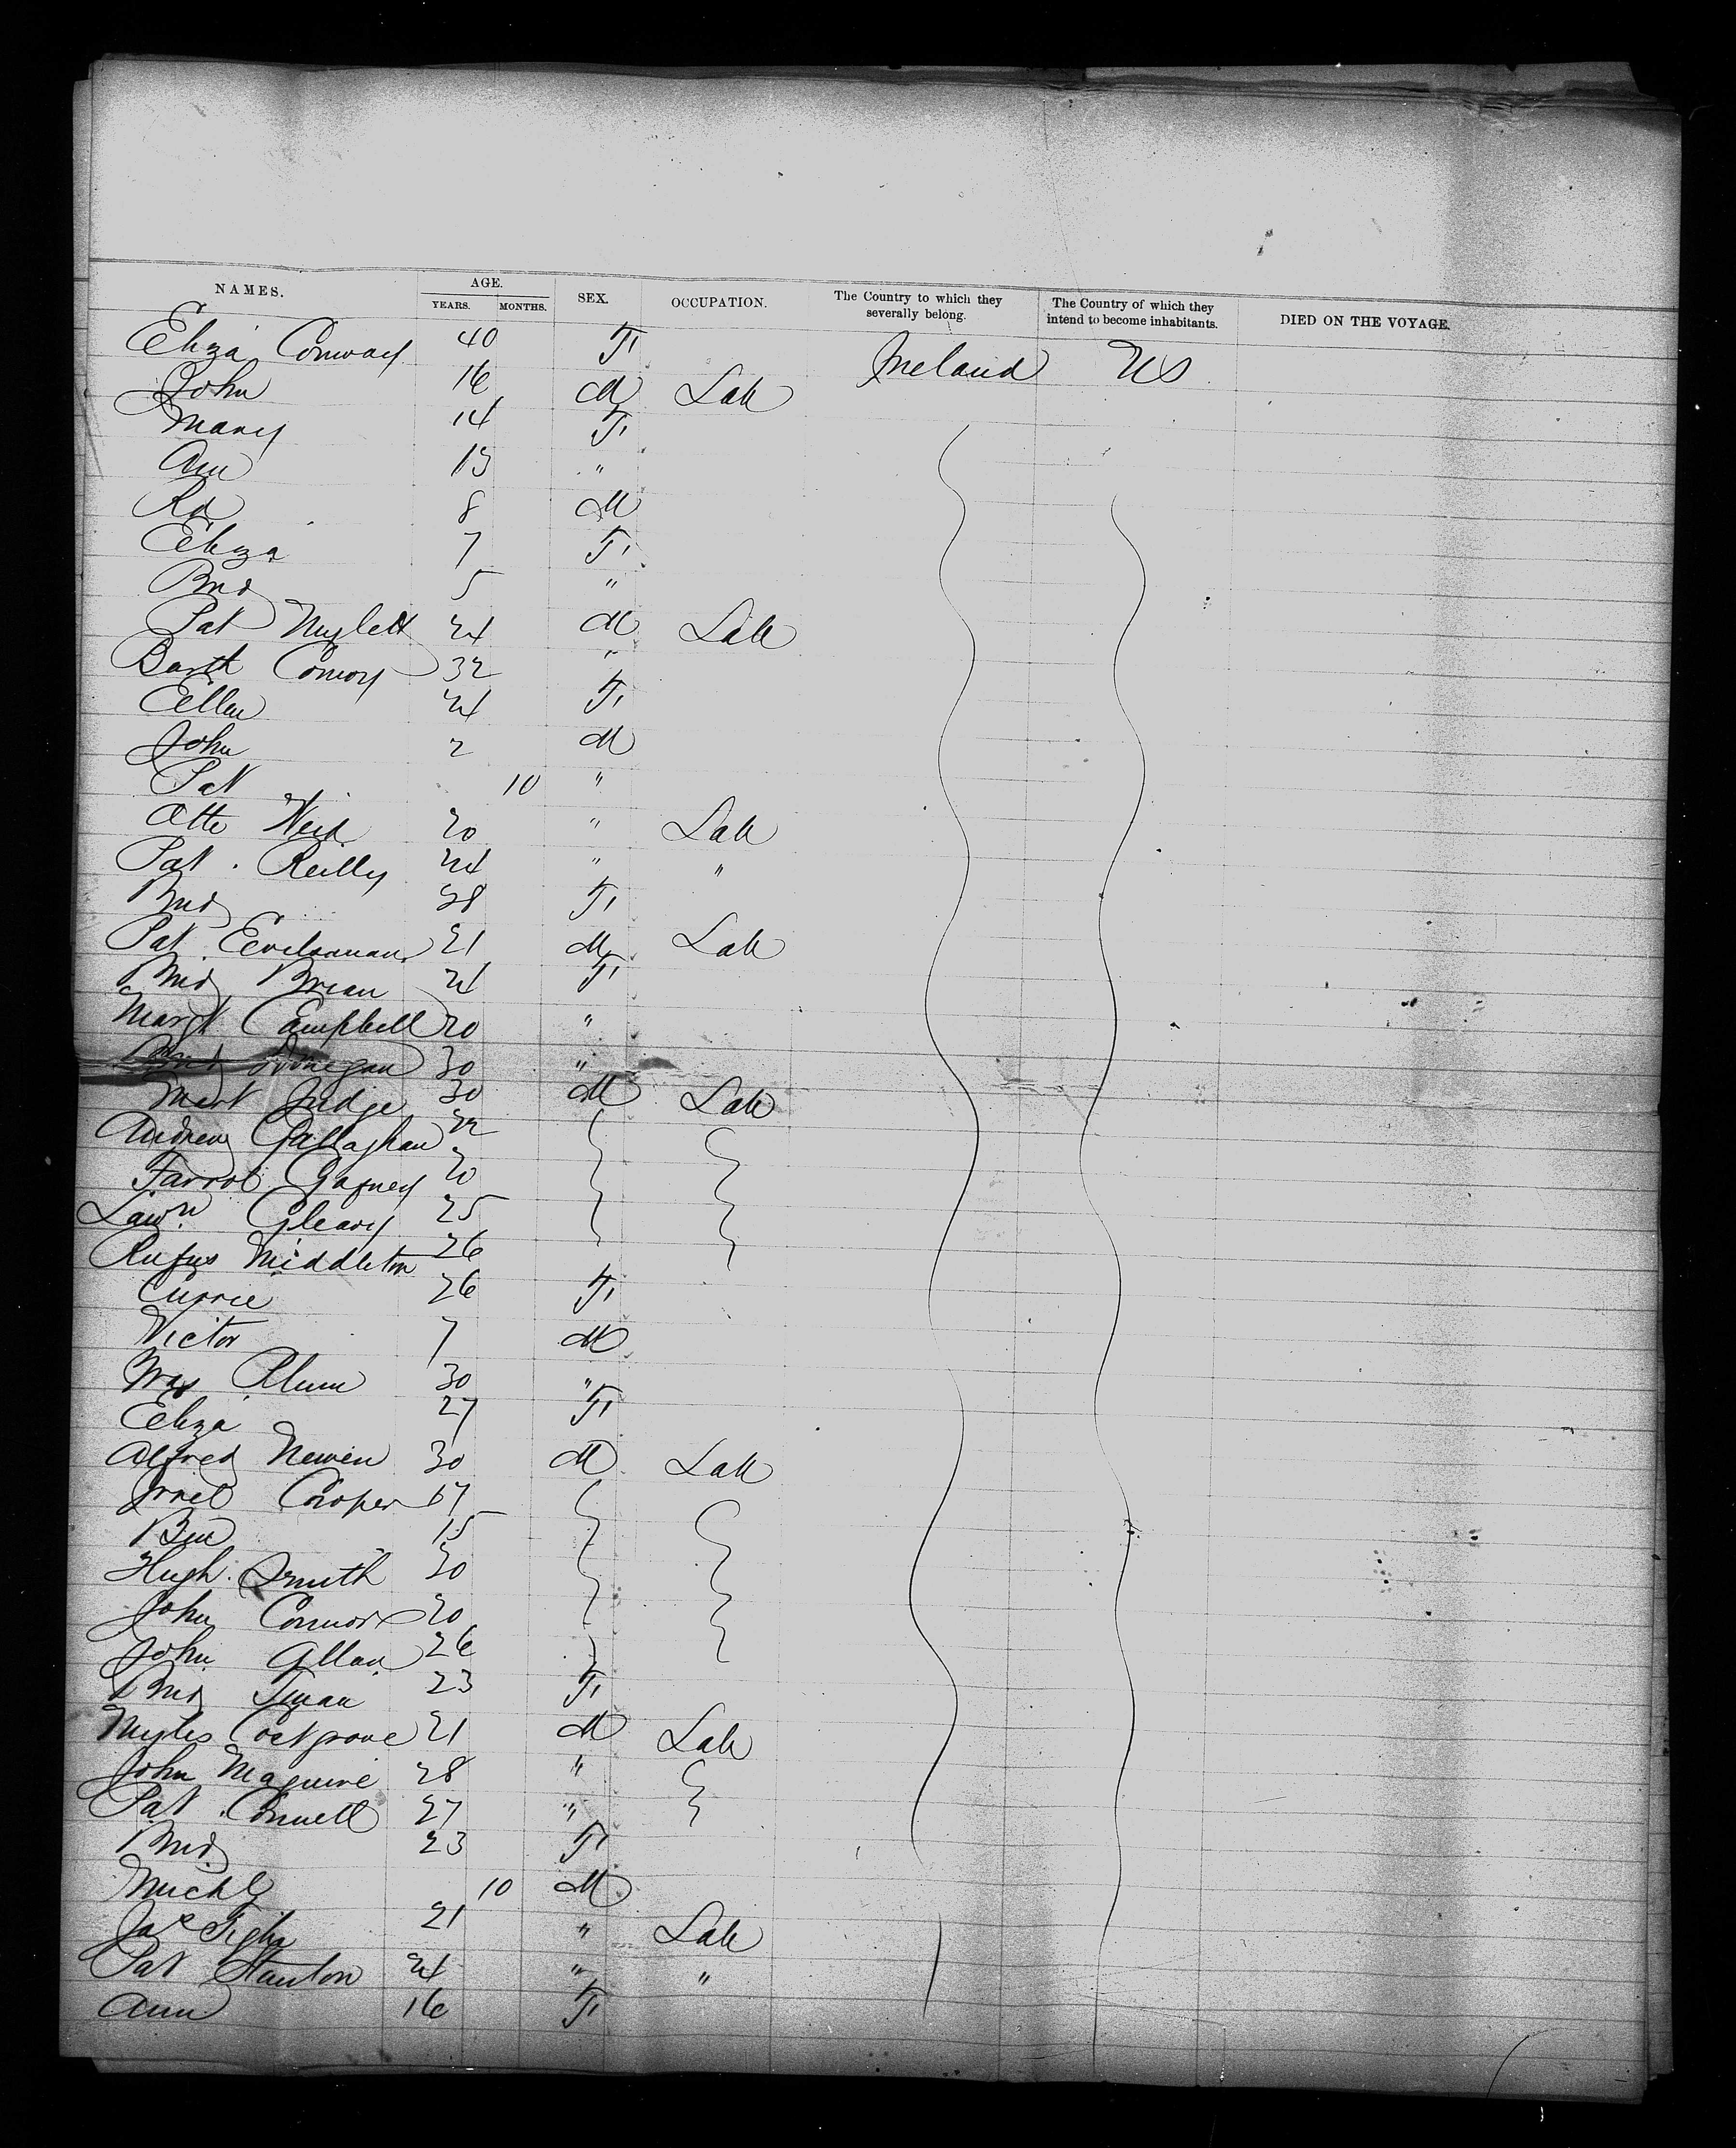 NAMES. AGE. YEARS. MONTHS. SEX. OCCUPATION. The Country to which they severally belong. The Country of which they intend to become inhabitants. DIED ON THE VOYAGE.
Eliza Conway 40 F Ireland US
John 16 M Lab
Mary 14 F
Ann 13 "
Rd 8 M
Eliza 7 F
Brid 5 "
Pat 24 M Lab
Barth Conroy 32 "
Ellen 24 F
John 2 M
Pat 10 "
Otto 20 " Lab
Pat. Reilly 24 " "
Brid 28 F
Pat 21 M Lab
Brid Brian 24 F
Margt Campbell 20 "
Brid Donegan 30 "
Mart Judge 30 M Lab
Andrew Gallaghan 22
Farrol Gafney 20
Lawn Gleary 25
Rufus Middleton 26
Currie 26 F
Victor 7 M
30 "
Eliza 27 F
Alfred Newen 30 M Lab
Cooper 17
Ben 15
Hugh. Smith 30
John Connor 20
John Allan 26
Brid 23 F
Myles Costgrove 21 M Lab
John Maguire 28 "
Pat. Connell 27 "
Brid 23 F
Michl 10 M
Jas Tighe 21 " Lab
Pat Stanton 24 " "
Ann 16 F